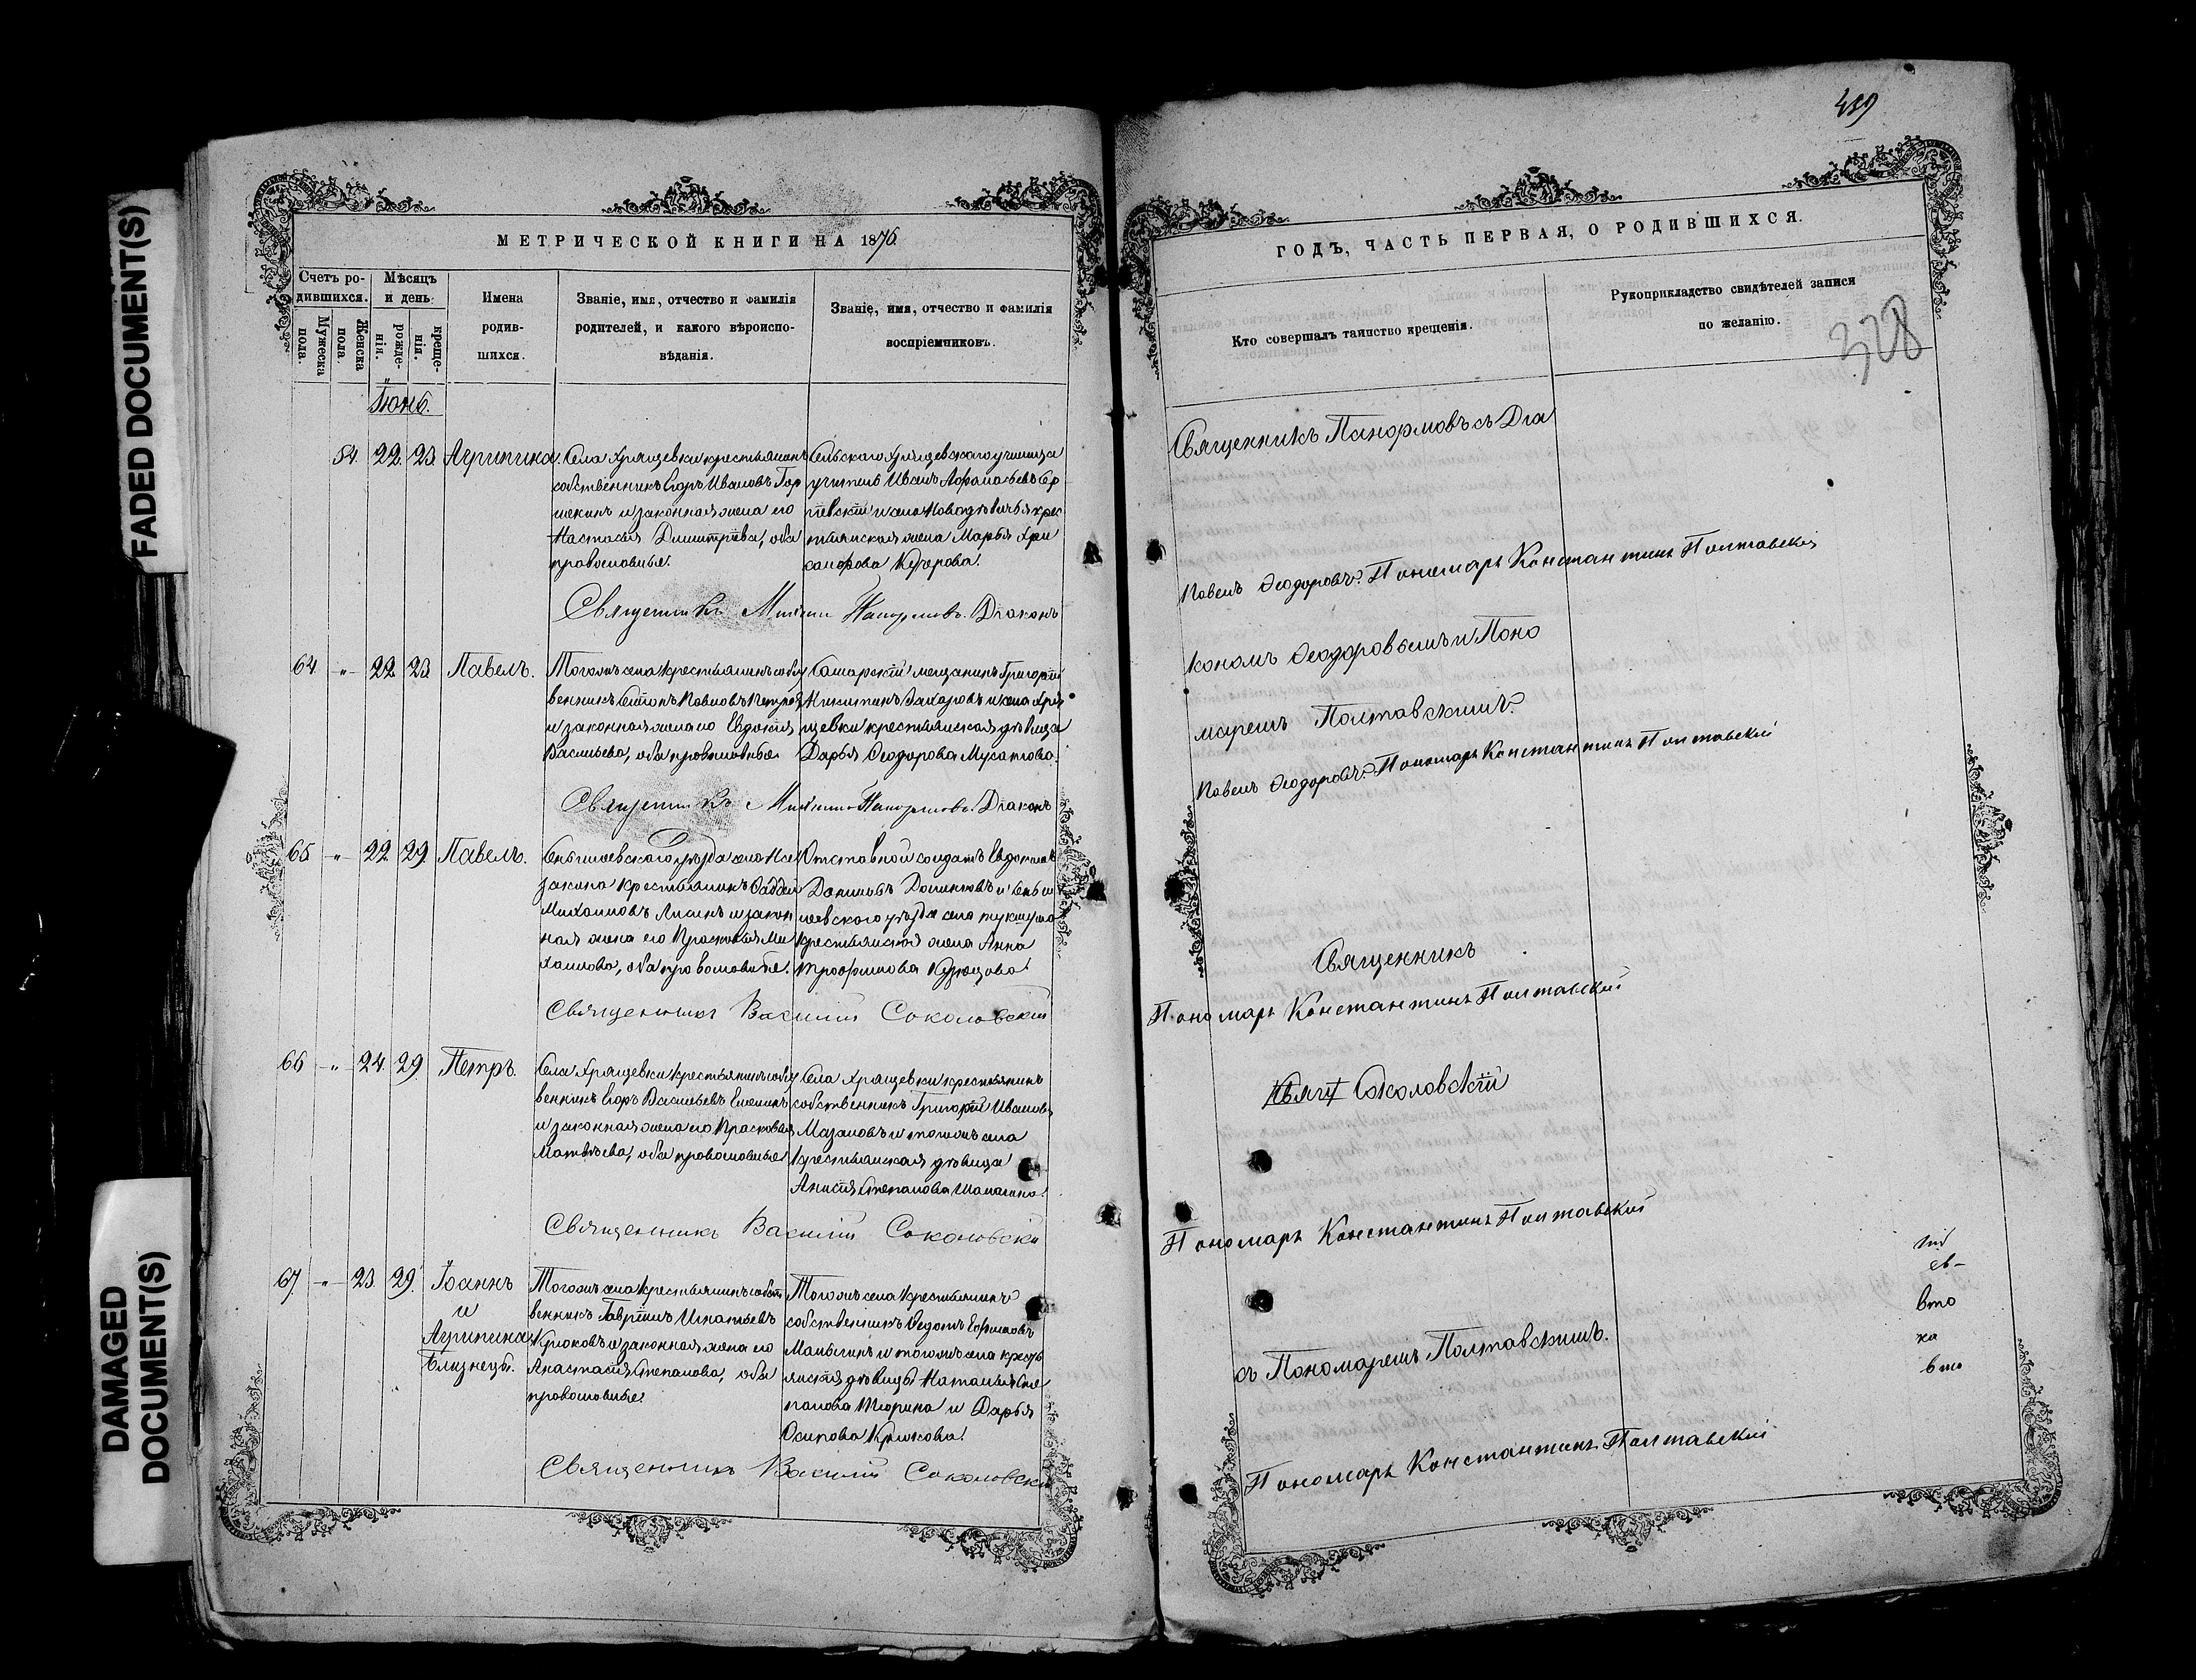 FADED DOCUMENT(S)
DAMAGED
DOCUMENT(S)
МЕТРИЧЕСКОЙ КНИГИ НА 1876.
Счетъ ро-
дившихся.
Мужеска
пола.
Женска
пола.
Мѣсяцъ
и день.
рожде-
нія.
креще-
нія.
Имена
родив-
шихся.
Званіе, имя, отчество и фамилія
родителей, и какого вѣроиспо-
вѣданія.
Званіе, имя, отчество и фамилія
воспріемниковъ.
Іюнь.
54. 22. 23. Агрипина.
Села Хрящевки крестьянинъ
собственникъ Егоръ Ивановъ Гор
шенинъ и законная жена его
Настасія Димитріева, оба
православные.
Сельскаго Хрящевскаго училища
учитель Иванъ Афанасьевъ Сер
гіевскій и села Новодѣвичья крес
тьянская жена Марья Хри
санфова Егорова.
Священникъ Панормовъ. Діаконъ
64 " 22 23 Павелъ.
Тогожъ села крестьянинъ собст
венникъ Павловъ Петровъ
и законная жена его Евдокія
Васильева, оба православные
Самарскій мещанинъ Григорій
Никитинъ Захаровъ и села Хря
щевки крестьянская дѣвица
Дарья Ѳеодорова Мусатова.
Священникъ Панормовъ. Діаконъ
65 " 22 29 Павелъ.
уѣзда села
крестьянинъ Фаддей
Михаиловъ Лисинъ и закон
ная жена его Прасковья Ми
хаилова, оба православные.
Отставной солдатъ Евдокимъ
Даниловъ и
уѣзда села
крестьянская жена Анна
Трофимова
Священникъ Василій Соколовскій
66 " 24. 29. Петръ.
Села Хрящевки крестьянинъ собст
венникъ Егоръ Васильевъ
и законная жена его Прасковья
Матвѣева, оба православные
Села Хрящевки крестьянинъ
собственникъ Григорій Ивановъ
Мазановъ и тогожъ села
крестьянская дѣвица
Анисія Степанова
Священникъ Василій Соколовскій
67. " 23. 29. Іоаннъ
и
Агрипина
Близнецы.
Тогожъ села крестьянинъ собст
венникъ Гавріилъ Игнатьевъ
Крюковъ и законная жена его
Анастасія Степанова, оба
православные
Тогожъ села крестьянинъ
собственникъ Ѳедотъ Ефимовъ
Малыгинъ и тогожъ села кресть
янскія дѣвицы Наталья Сте
панова Тюрина и Дарья
Осипова Крюкова.
Священникъ Василій Соколовскій
ГОДЪ, ЧАСТЬ ПЕРВАЯ, О РОДИВШИХСЯ.
Кто совершалъ таинство крещенія.
Рукоприкладство свидѣтелей записи
по желанію.
328
Священникъ Панормовъ съ Діа
Павелъ Ѳеодоровъ. Пономарь Константинъ Полтавскій
кономъ Ѳеодоровымъ и Поно
маремъ Полтавскимъ.
Павелъ Ѳеодоровъ. Пономарь Константинъ Полтавскій
Священникъ
Пономарь Константинъ Полтавскій
Соколовскій
Пономарь Константинъ Полтавскій
съ Пономаремъ Полтавскимъ.
Пономарь Константинъ Полтавскій